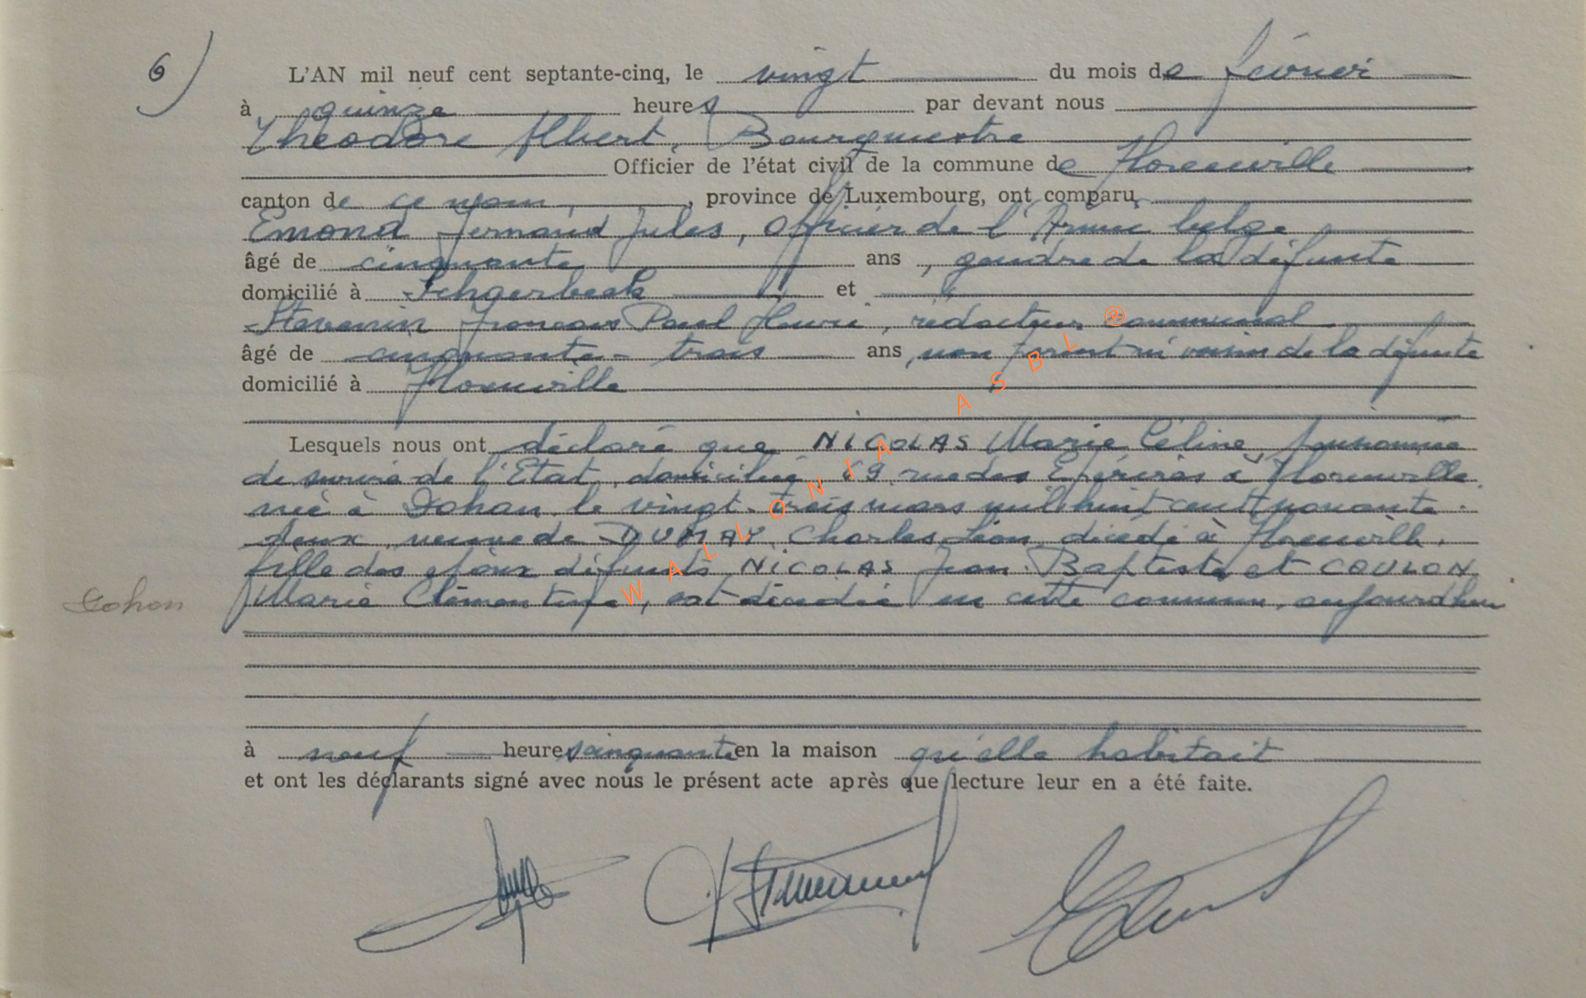 6)
L'AN mil neuf cent septante-cinq, le vingt du mois de février
à quinze heures par devant nous
Théodore Albert, Bourgmestre
Officier de l'état civil de la commune de Florenville
canton de ce nom, province de Luxembourg, ont comparu,
Emond Fernand Jules, Officier de l'Armée belge
âgé de cinquante ans, gendre de la défunte
domicilié à Schaerbeek et
Stevenin François Paul Henri, rédacteur communal
âgé de cinquante-trois ans, non parent ni voisin de la défunte
domicilié à Florenville
Lesquels nous ont déclaré que NICOLAS Marie Céline, pensionnée
de survie de l'Etat, domiciliée rue des Epérires à Florenville
née à Dohan le vingt-trois mars mil huit cent nonante-
deux, veuve de DUMAY, Charles Léon, décédé à Florenville,
fille des époux défunts NICOLAS Jean Baptiste et COULON
Dohan Marie Clémentine, est décédée en cette commune, aujourd'hui
à neuf heures cinquante en la maison qu'elle habitait
et ont les déclarants signé avec nous le présent acte après que lecture leur en a été faite.
WALLONIA ASBL ®